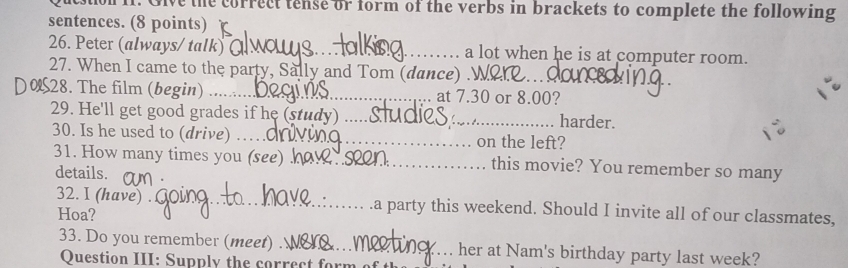 Question II: Give the correct tense or form of the verbs in brackets to complete the following
sentences. (8 points)
is
26. Peter (always/ talk) always talking a lot when he is at computer room.
27. When I came to the party, Sally and Tom (dance) were dancing
Does 28. The film (begin) begins at 7.30 or 8.00?
29. He'll get good grades if he (study) studies harder.
30. Is he used to (drive) driving on the left?
31. How many times you (see) have seen this movie? You remember so many
details.
am
32. I (have) going to have a party this weekend. Should I invite all of our classmates,
Hoa?
33. Do you remember (meet) were meeting her at Nam's birthday party last week?
Question III: Supply the correct form of the